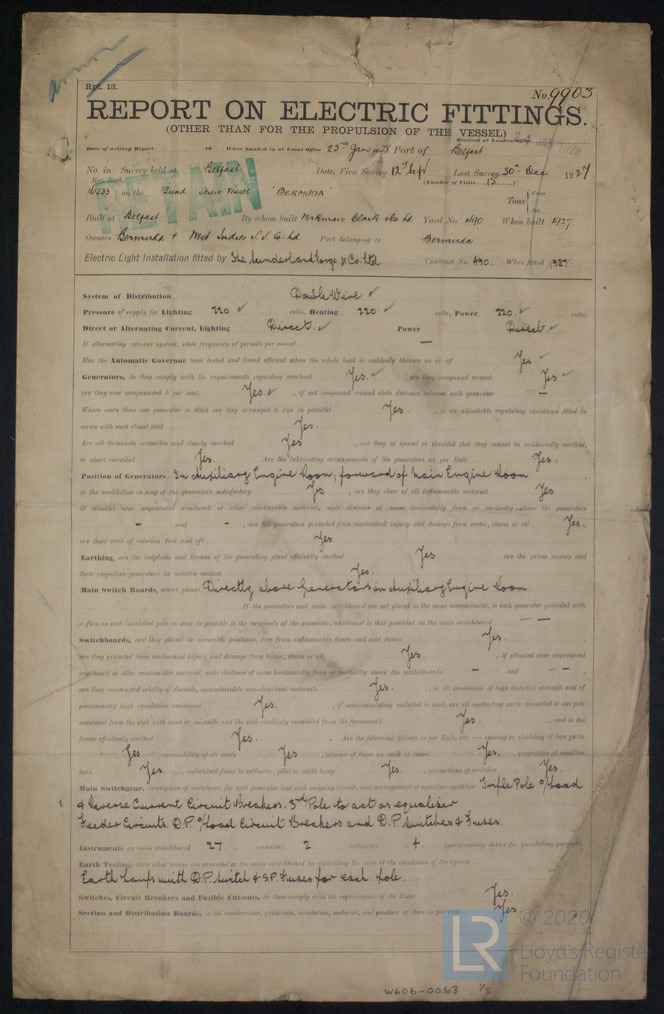 Rpt. 13.
No. 9903
REPORT ON ELECTRIC FITTINGS.
(OTHER THAN FOR THE PROPULSION OF THE VESSEL)
Received at London Office
Date of writing Report 19 When handed in at Local Office 23rd Jan 1928 Port of Belfast
No. in Survey held at Belfast Date, First Survey 12th Sept Last Survey 30th Dec 1927
Reg. Book. (Number of Visits 15)
16533 on the Quad Screw Vessel "BERMUDA" Tons { Gross
Net
Built at Belfast By whom built Workman Clark & Co Ltd Yard No. 490 When built 1927
Owners Bermuda & West Indies S.S. Co Ltd Port belonging to Bermuda
Electric Light Installation fitted by The Sunderland Forge & Co. Ltd Contract No. 490 When fitted 1927
RETAIN
System of Distribution Double Wire ✓
Pressure of supply for Lighting 220 ✓ volts, Heating 220 ✓ volts, Power 220 ✓ volts.
Direct or Alternating Current, Lighting Direct ✓ Power Direct ✓
If alternating current system, state frequency of periods per second —
Has the Automatic Governor been tested and found efficient when the whole load is suddenly thrown on or off Yes. ✓
Generators, do they comply with the requirements regarding overload Yes. ✓, are they compound wound Yes ✓
are they over compounded 5 per cent. Yes. ✓, if not compound wound state distance between each generator —
Where more than one generator is fitted are they arranged to run in parallel Yes., is an adjustable regulating resistance fitted in
series with each shunt field Yes.
Are all terminals accessible and clearly marked Yes, are they so spaced or shielded that they cannot be accidentally earthed,
or short circuited Yes. Are the lubricating arrangements of the generators as per Rule Yes.
Position of Generators In Auxiliary Engine Room, forward of Main Engine Room
is the ventilation in way of the generators satisfactory Yes, are they clear of all inflammable material Yes
if situated near unprotected woodwork or other combustible material, state distance of same horizontally from or vertically above the generators
- and -, are the generators protected from mechanical injury and damage from water, steam or oil Yes.
are their axes of rotation fore and aft Yes.
Earthing, are the bedplates and frames of the generating plant efficiently earthed Yes are the prime movers and
their respective generators in metallic contact Yes.
Main Switch Boards, where placed Directly above Generators in Auxiliary Engine Room
If the generators and main switchboard are not placed in the same compartment, is each generator provided with
a fuse on each insulated pole as near as possible to the terminals of the generator, additional to that provided on the main switchboard —
Switchboards, are they placed in accessible positions, free from inflammable gases and acid fumes Yes.
are they protected from mechanical injury and damage from water, steam or oil Yes., if situated near unprotected
woodwork or other combustible material, state distance of same horizontally from or vertically above the switchboards - and -
are they constructed wholly of durable, incombustible non-absorbent materials Yes., is all insulation of high dielectric strength and of
permanently high insulation resistance Yes., if semi-insulating material is used, are all conducting parts connected to one pole
insulated from the slab with mica or micanite and the slab similarly insulated from its framework Yes., and is the
frame effectively earthed Yes. Are the following fittings as per Rule, viz.:— spacing or shielding of live parts
Yes, accessibility of all parts Yes, absence of fuses on back of board Yes., proportion of omnibus
bars Yes., individual fuses to voltmeter, pilot or earth lamp Yes., connections of switches Yes.
Main Switchgear, description of switchgear for each generator and each outgoing circuit, and arrangement of equaliser switches Triple Pole o/load
& Reverse Current Circuit Breakers. 3rd Pole to act as equaliser
Feeder Circuits. D.P. o/load Circuit Breakers and D.P. Switches & Fuses.
Instruments on main switchboard 27 ammeters 2 voltmeters 4 synchronising device for paralleling purposes.
Earth Testing, state what means are provided at the main switchboard for indicating the state of the insulation of the system
Earth Lamps with D.P. Switch & S.P. Fuses for each pole.
Switches, Circuit Breakers and Fusible Cut-outs, do these comply with the requirements of the Rules Yes.
Section and Distribution Boards, is the construction, protection, insulation, material, and position of these as per rule Yes
LR
© 2020
Lloyd's Register
Foundation
W606-0063 1/3